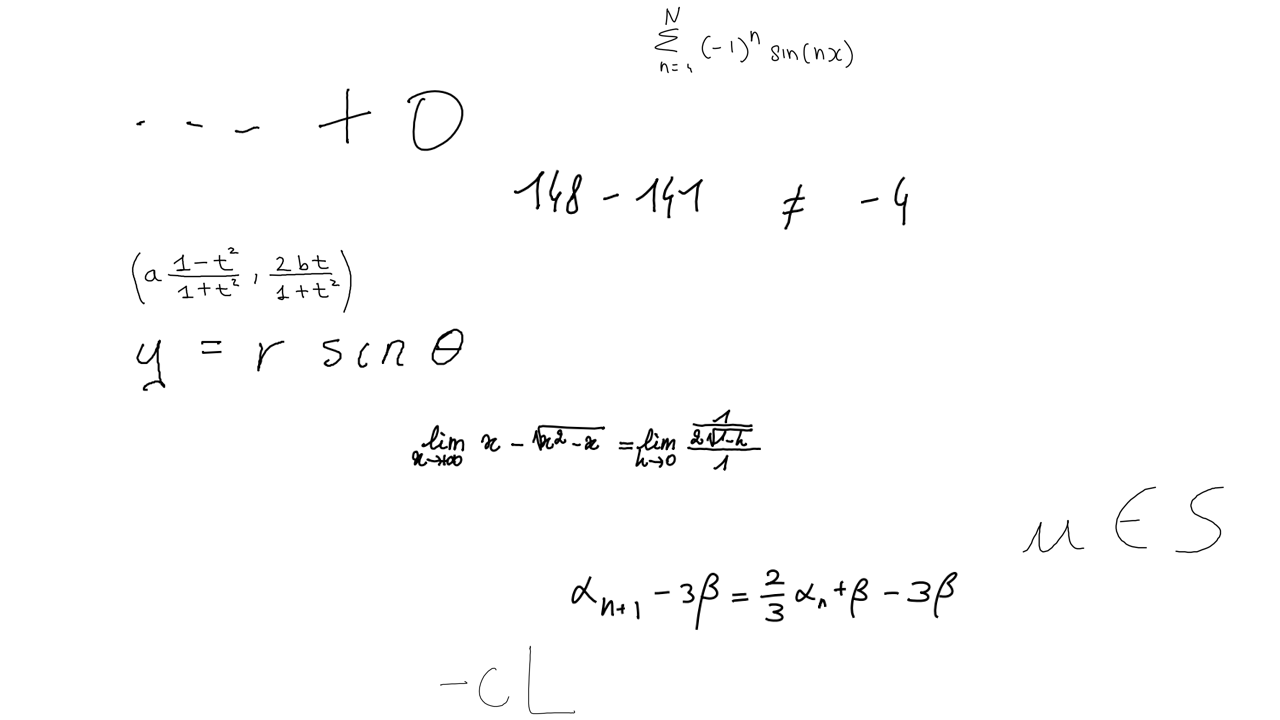 \sum_{n=1}^{N} (-1)^n \sin(nx)
\cdots + 0
148 - 141 \neq -4
\left(a \frac{1-t^2}{1+t^2}, \frac{2bt}{1+t^2}\right)
y = r \sin \theta
\lim_{x \to +\infty} x - \sqrt{x^2 - x} = \lim_{h \to 0} \frac{\frac{1}{2\sqrt{1-h}}}{1}
u \in S
\alpha_{n+1} - 3\beta = \frac{2}{3} \alpha_n + \beta - 3\beta
-cL